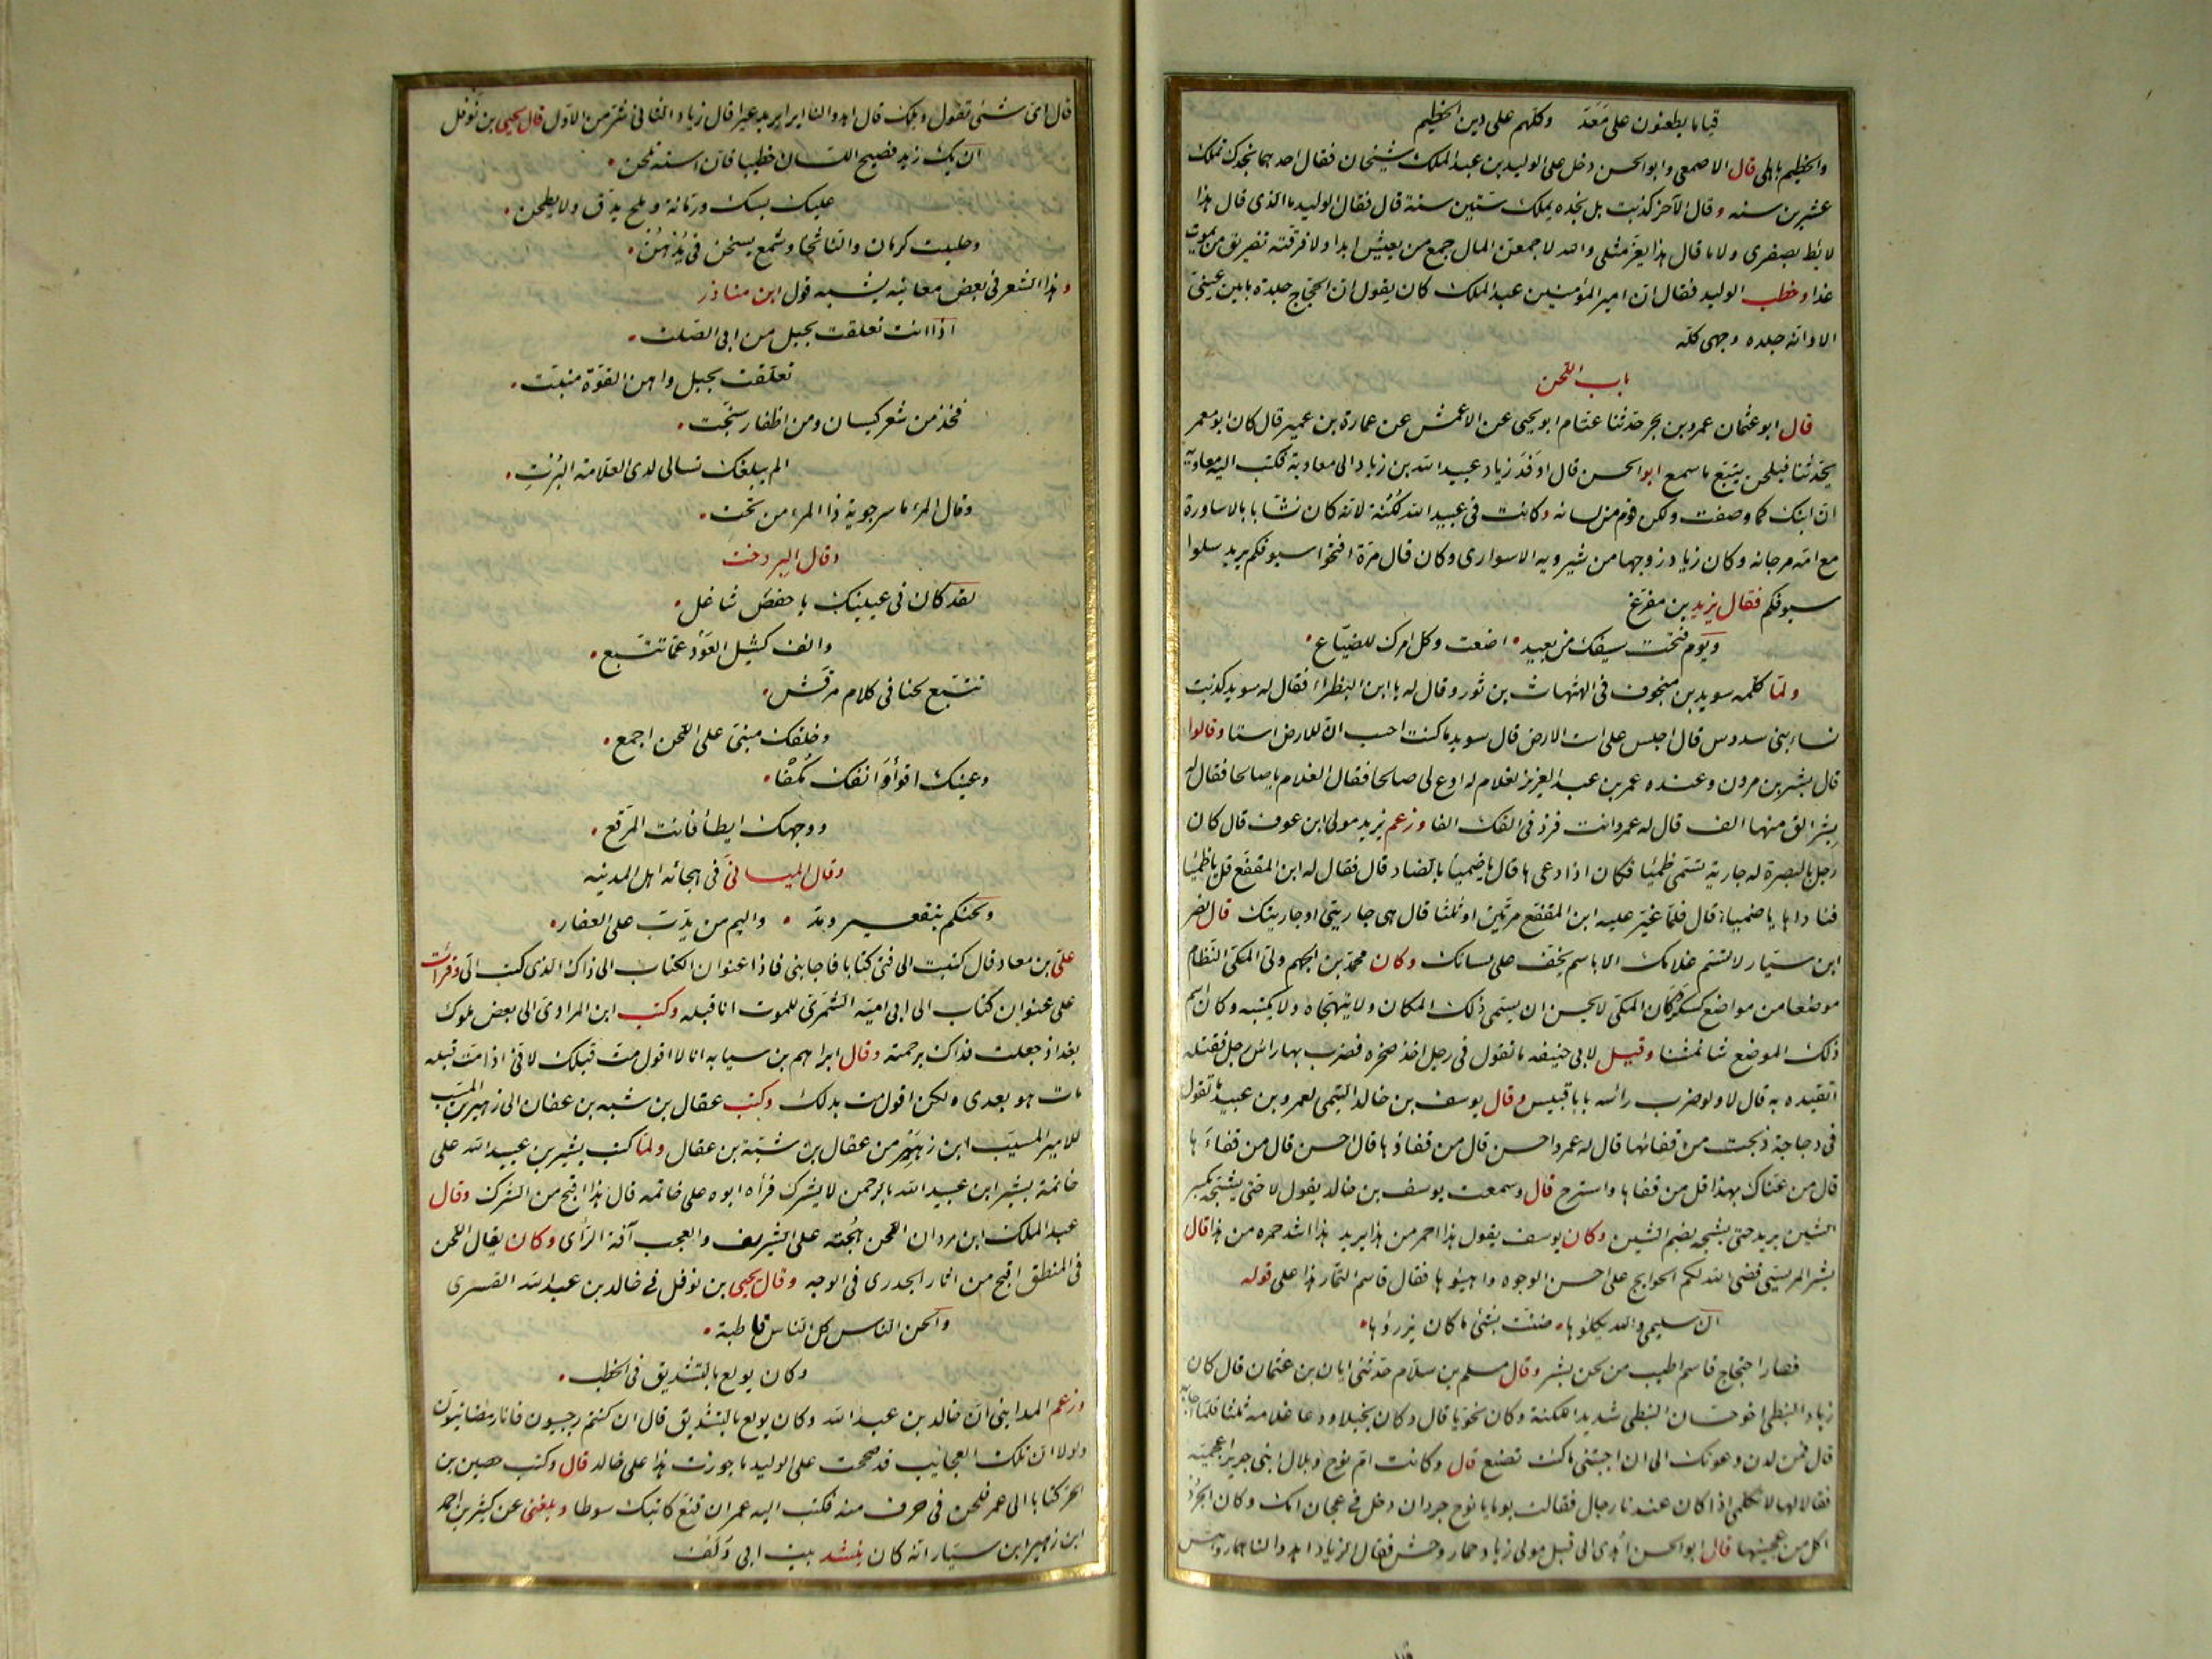 قياما يطعنون على معد وكلهم على دين الخطيم
والخطيم باهلى قال الاصمعى وابو الحسن دخل على الوليد بن عبد الملك شيخان فقال احدهما نجدك تملك
عشرين سنه وقال الآخر كذبت بل نجده يملك ستين سنة قال فقال الوليد ما الذى قال هذا
لائط بصفرى ولا ما قال هذا يغر مثلى والله لاجمعن المال جمع من يعيش ابدا ولا فرقنه تفريق من يموت
غدا وخطب الوليد فقال ان امير المؤمنين عبد الملك كان يقول ان الحجاج جلدة ما بين عينى
الا وانه جلده وجهى كله
باب اللحن
قال ابو عثمان عمرو بن بحر حدثنا عثام ابو يحيى عن الاعمش عن عمارة بن عمير قال كان ابو معمر
يحدثنا فيلحن يتبع ما سمع ابو الحسن قال اوفد زياد عبيد الله بن زياد الى معاوية فكتب اليه معاوية
ان ابنك كما وصفت ولكن قوم من لسانه وكانت فى عبيد الله لكنة لانه كان نشا بالاساورة
مع امه مرجانه وكان زياد زوجها من شيرويه الاسوارى وكان قال مرة افتحوا سيوفكم يريد سلوا
سيوفكم فقال يزيد بن مفرغ
ويوم فتحت سيفك من بعيد • اضعت وكل امرك للضياع •
ولما كلمه سويد بن منجوف فى الهثهاث بن ثور وقال له يا ابن البظراء فقال له سويد كذبت
نساء بنى سدوس قال اجلس على است الارض قال سويد ما كنت احسب ان للارض استا وقالوا
قال بشر بن مرون وعنده عمر بن عبد العزيز لغلام له ادع لى صالحا فقال الغلام يا صالحا فقال له
بشر الق منها الف قال له عمر وانت فزد فى الفك الفا وزعم يزيد مولى ابن عون قال كان
رجل بالبصرة له جارية تسمى ظميا فكان اذا دعاها قال يا ضميا بالضاد قال فقال له ابن المقفع قل يا ظميا
فناداها يا ضميا قال فلما غير عليه ابن المقفع مرتين او ثلثا قال هى جاريتى او جاريتك قال نصر
ابن سيار لا تسم غلامك الا باسم يخف على لسانك وكان محمد بن الجهم ولى المكى النظام
موضعا من مواضع كسكر وكان المكى لا يحسن ان يسمى ذلك المكان ولا يتهجاه ولا يكتبه وكان اسم
ذلك الموضع شانمثنا وقيل لابى حنيفه ما تقول فى رجل اخذ صخره فضرب بها راس رجل فقتله
اتقيده به قال لا ولو ضرب رأسه بابا قبيس وقال يوسف بن خالد التيمى لعمرو بن عبيد ما تقول
فى دجاجة ذبحت من قفائها قال له عمرو احسن قال من قفاؤها قال احسن قال من قفاءها
قال من عناك بهذا قل من قفاها واسترح قال وسمعت يوسف بن خالد يقول لا حتى يشجه بكسر
الشين يريد حتى يشجه بضم الشين وكان يوسف يقول هذا احمر من هذا يريد هذا اشد حمره من هذا قال
بشر المريسى قضى الله لكم الحوايج على احسن الوجوه واهيؤها فقال قاسم التمار هذا على قوله
ان سليمى والله يكلؤها • ضنت بشئ ما كان يزرؤها •
فصار احتجاج قاسم اطيب من لحن بشر وقال مسلم بن سلام حدثنى ابان بن عثمان قال كان
زياد النبطى اخو حسان النبطى شديد اللكنة وكان نحويا قال وكان بخيلا ودعا غلامه ثلثا فلما اجابه
قال فمن لدن دعوتك الى ان اجبتنى ما كنت تصنع قال وكانت ام نوح وبلال ابنى جرير اعجميه
فقالا لها لا تكلمى اذا كان عندنا رجال فقالت يوما يا نوح جردان دخل فى عجان امك وكان الجرذ
اكل من عجينها قال ابو الحسن اهدى الى قيل مولى زياد حمار وحش فقال لزياد اهدوا لنا همار وهش
قال اى شئ تقول ويلك قال اهدوا لنا ايرا يريد عيرا قال زياد الثانى شر من الاول قال يحيى بن نوفل
ان يك زيد فصيح اللسان خطيبا فان استه تلحن •
عليك بسك ورمانة وملح يدق ولا يطحن •
وحليت كرمان والنانخا وشمع يسخن فى مدهن •
وهذا الشعر فى بعض معانيه يشبه قول ابن مناذر
اذا انت تعلقت بحبل من ابى الصلت •
تعلقت بحبل واهن القوة منبت •
فخذ من شعر كيسان ومن اظفار سنجت •
الم يبلغك تسالى لدى العلامة البرت •
وقال المرء ما سرجوية ذا المرء من تحت •
وقال البردخت
لقد كان فى عينيك يا حفص شاغل •
وانف كثيل العود عما تتبع •
تتبع لحنا فى كلام مرقش •
وخلقك مبنى على اللحن اجمع •
وعينك اقواء وانفك مكفا •
ووجهك ايطاء فانت المرقع •
وقال الميسانى فى هجائه اهل المدينه
ولحنكم بتقعير ومد • والام من يدب على العفار •
على بن معاذ قال كتبت الى فتى كتابا فاجابنى فاذا عنوان الكتاب الى ذاك الذى كتب الى وقرات
على عنوان كتاب الى ابى امية الشمرى للموت انا قبله وكتب ابن المرادى الى بعض ملوك
بغداذ جعلت فداك برحمته وقال ابراهيم بن سيابه انا لا اقول مت قبلك لانى اذا مت قبله
مات هو بعدى ولكن اقول مت بدلك وكتب عقال بن شبه بن عفان الى زهير بن المسيب
للامير المسيب ابن زهير من عقال بن شبة بن عقال ولما كتب بشير بن عبيد الله على
خاتمة بشير ابن عبيد الله بالرحمن لا يشرك قرأه ابوه على خاتمه قال هذا اقبح من الشرك وقال
عبد الملك ابن مروان اللحن هجنة على الشريف والعجب آفة الرأى وكان يقال اللحن
فى المنطق اقبح من اثار الجدرى فى الوجه وقال يحيى بن نوفل فى خالد بن عبد الله القسرى
والحن الناس كل الناس قاطبة •
وكان يولع بالتشديق فى الخطب •
وزعم المداينى ان خالد بن عبد الله وكان يولع بالتشديق قال ان كنتم رجبيون فانا رمضانيون
ولولا ان تلك العجائب قد صحت على الوليد ما جوزت هذا على خالد قال وكتب حصين بن
الحر كتابا الى عمر فلحن فى حرف منه فكتب اليه عمر ان قنع كاتبك سوطا وبلغنى عن كثير بن احمد
ابن زهير ابن سيار انه كان ينشد بيت ابى دلف